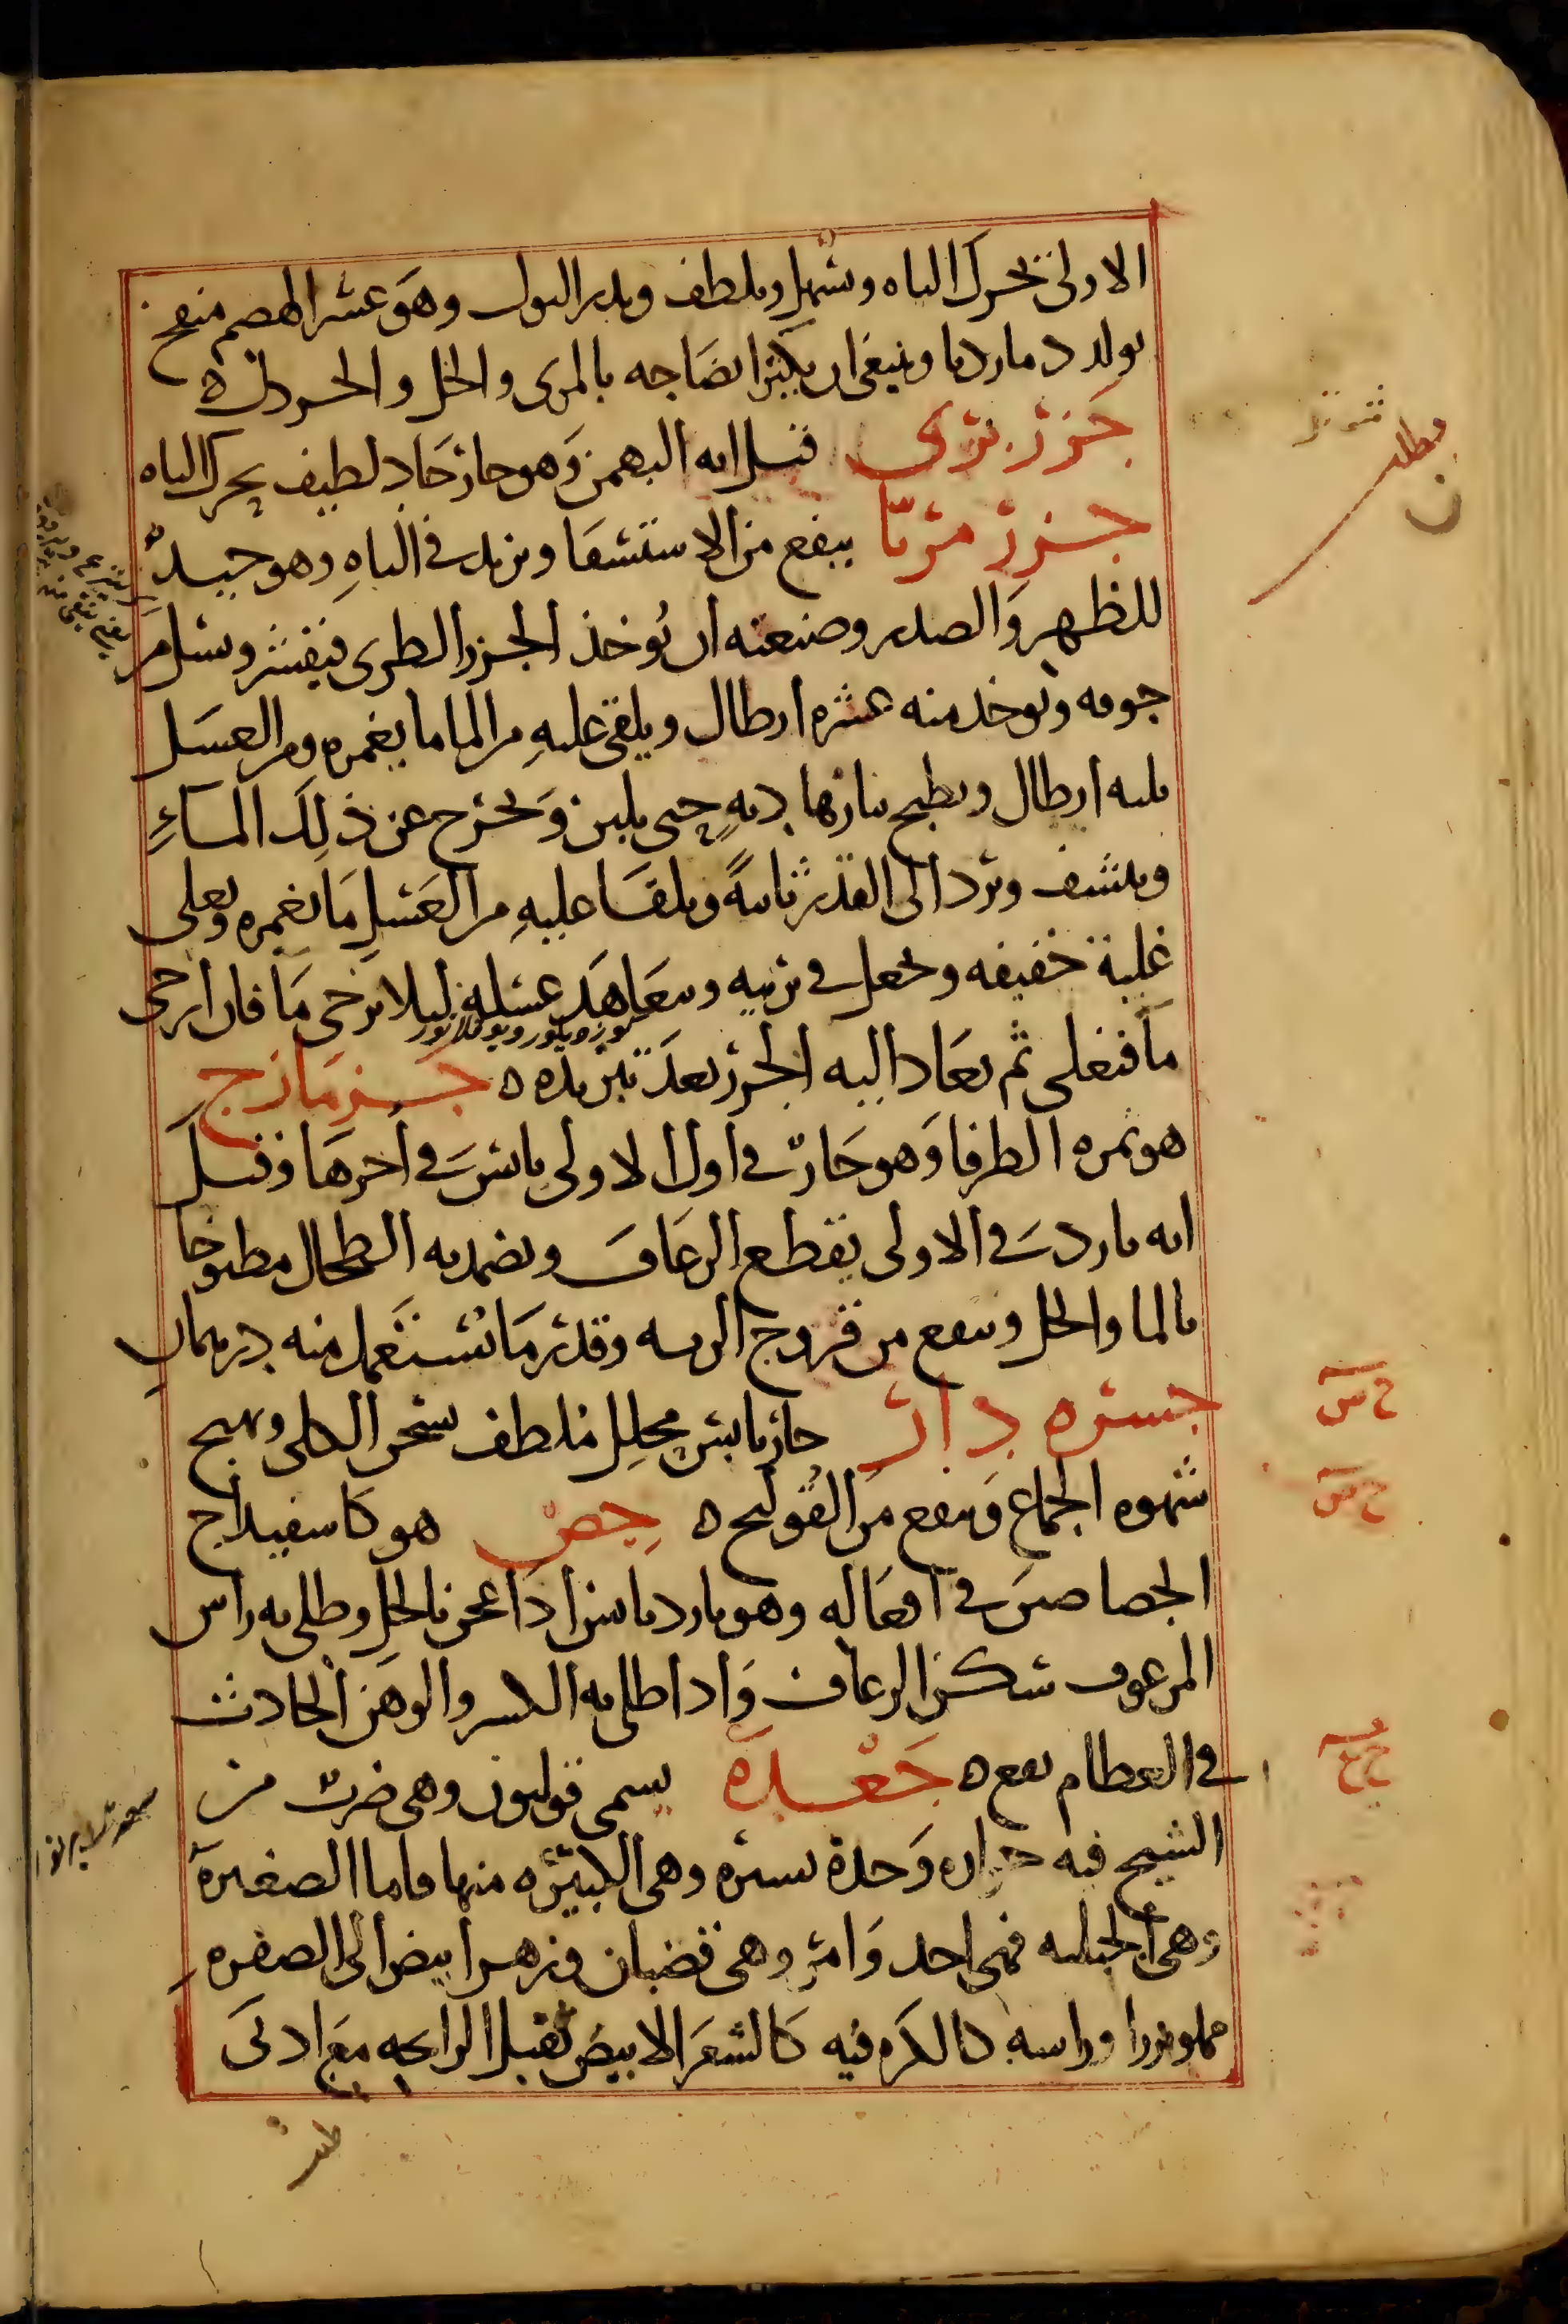 الاولى يحرك الباه ويسهل ويلطف ويدر البول وهو عسر الهضم منفخ
يولد دما رديا وينبغى ان يكثر انضاجه بالمرى والخل والخردل ه
جزر برى قيل انه البهمن وهو حار حاد لطيف يحرك الباه
جزر مربا ينفع من الاستسقا ويزيد فى الباه وهو جيد
للظهر والصدر وصنعته ان يوخذ الجزر الطرى فيقشر ويسل من
جوفه ويوخذ منه عشره ارطال ويلقى عليه من الما ما يغمره ومن العسل
ثلثه ارطال ويطبخ بنار هاديه حتى يلين ويخرج عن ذلك الماء
وينشف ويرد الى القدر ثانية ويلقا عليه من العسل ما يغمره ويغلى
غلية خفيفه ويجعل فى برنيه ويتعاهد عسله ليلا يرخى ما فان ارخى
ما فيغلى ثم يعاد اليه الجزر بعد تبريده ه جزمازج
هو ثمره الطرفا وهو حار فى اول الاولى يابس فى اخرها وقيل
انه بارد فى الاولى يقطع الرعاف ويضمد به الطحال مطبوخا
بالما والخل وينفع من قروح الريه وقدر ما يستعمل منه درهمان
جسره دار حار يابس محلل ملطف يسخن الكلى ويهيج
شهوه الجماع وينفع من القولنج ه جص هو كاسفيداج
الجصاصين فى افعاله وهو بارد يابس اذا عجن بالخل وطلى به راس
المرعوف سكن الرعاف واذا طلى به الكسر والوهن الحادث
فى العظام نفع ه جعدة يسمى فوليون وهى ضرب من
الشيح فيه حراره وحدة يسيره وهى الكبيره منها واما الصغيرة
وهى الجبليه فهى احد وامر وهى قضبان وزهر ابيض الى الصفره
مملو بزرا وراسه كالكره فيه كالشعر الابيض ثقيل الرايحه مع ادنى